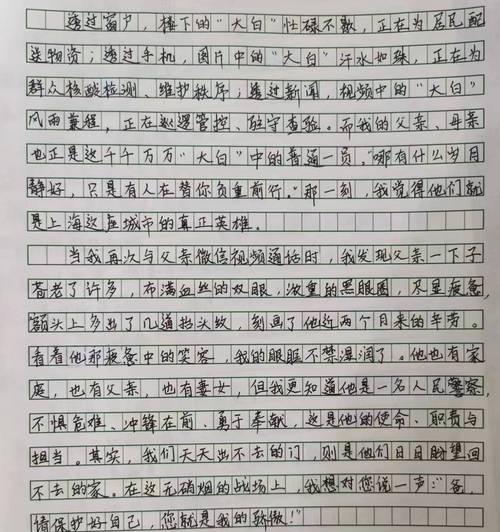 透过窗户，楼下的“大白”忙碌不歇，正在为居民配
送物资；透过手机，图片中的“大白”汗水如珠，正在为
群众核酸检测、维护秩序；透过新闻，视频中的“大白”
风雨兼程，正在巡逻管控、驻守查验。而我的父亲、母亲
也正是这千千万万“大白”中的普通一员，“哪有什么岁月
静好，只是有人在替你负重前行。”那一刻，我觉得他们就
是上海这座城市的真正英雄。
当我再次与父亲微信视频通话时，我发现父亲一下子
苍老了许多，布满血丝的双眼，浓重的黑眼圈，尽显疲惫，
额头上多出了几道抬头纹，刻画了他近两个月来的辛劳。
看着他那疲惫中的笑容，我的眼眶不禁湿润了。他也有家
庭，也有父亲，也有妻女，但我更知道他是一名人民警察，
不惧危难、冲锋在前、勇于奉献，这是他的使命、职责与
担当。其实，我们天天出不去的门，则是他们日日盼望回
不去的家。在这无硝烟的战场上，我想对您说一声：“爸，
请保护好自己，您就是我的骄傲！”